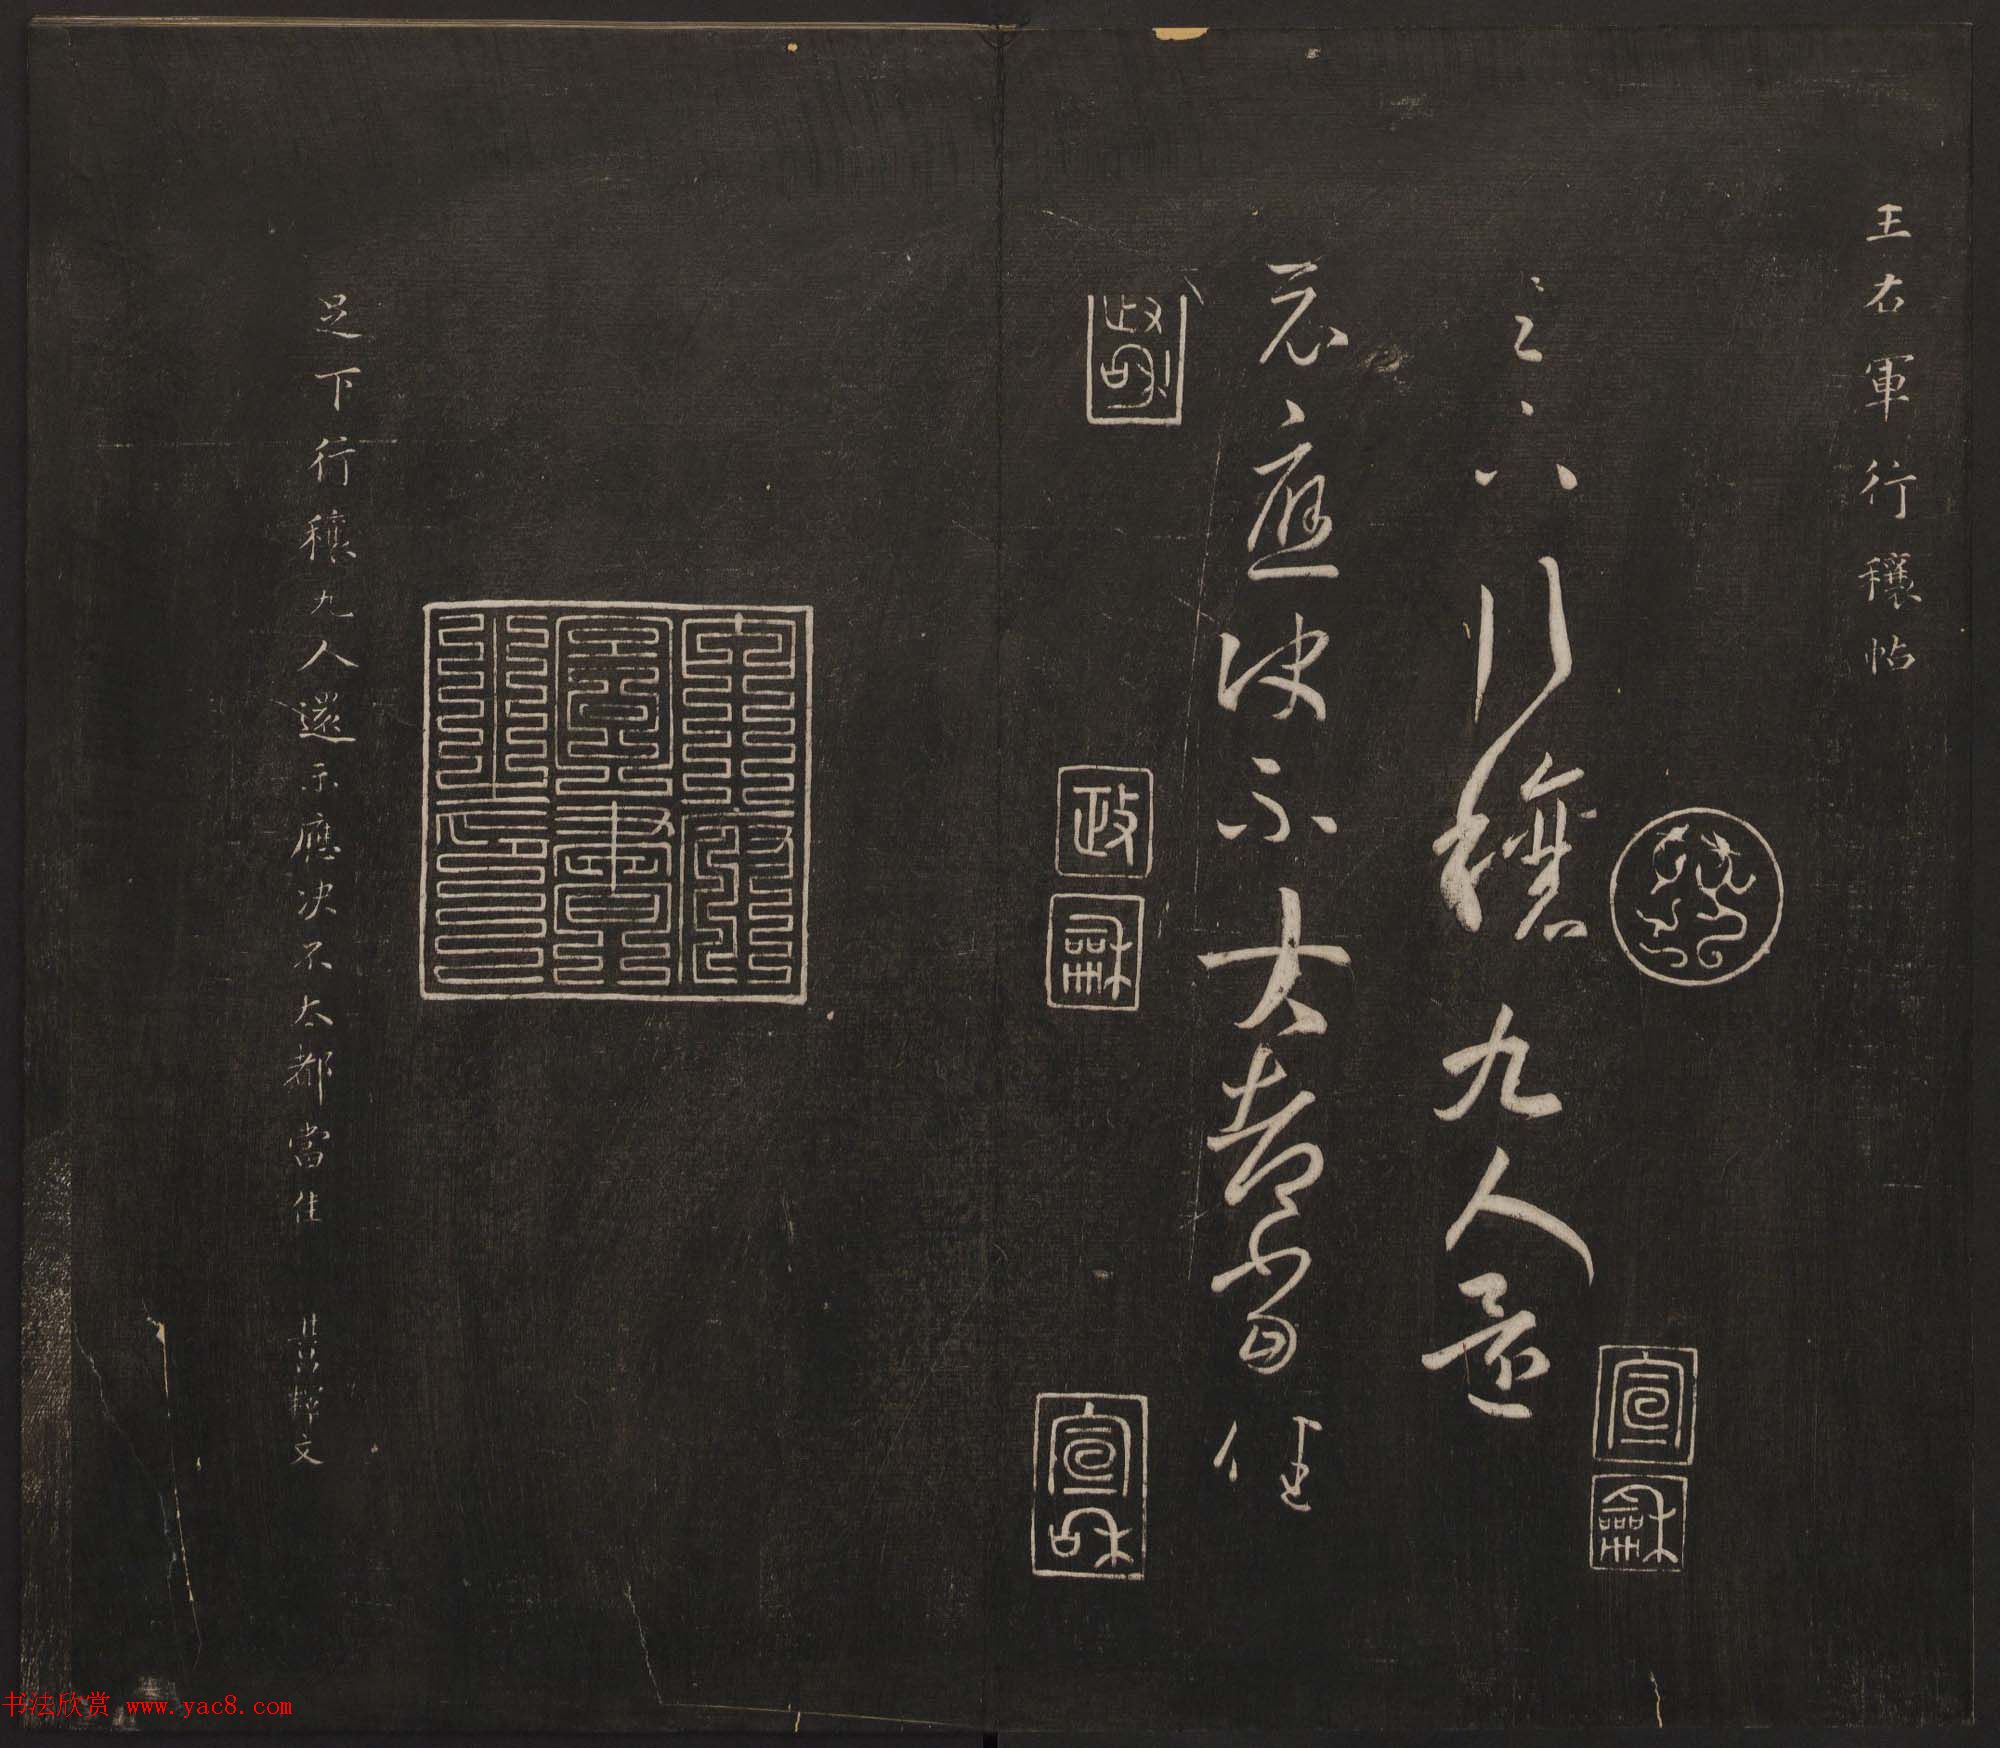 王右軍行穰帖
足下行穰九人還
示應決不大都當佳
政和
宣
龢
政
龢
宣和
足下行穰九人還示應决不大都當佳 其昌釋文
书法欣赏 www.yac8.com